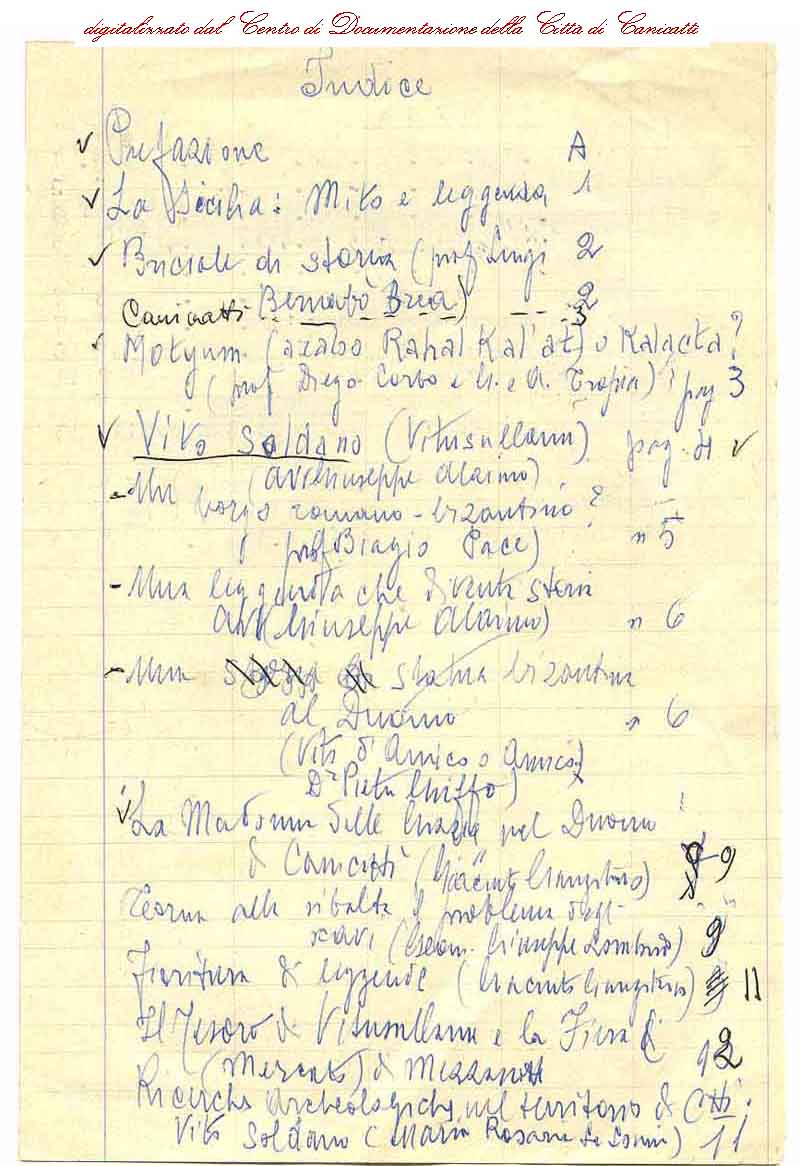 digitalizzato dal Centro di Documentazione della Città di Canicattì
Indice
✓ Prefazione A
✓ La Sicilia: Mito e leggenda 1
✓ Briciole di storia (prof Luigi 2
Canicatti Bernabò Brea) --- 3
Motyum (arabo Rahal Kal'at) o Kalacta?
(prof Diego Corbo e U. e A. Tropia) pag 3
✓ Vito Soldano (Vitusullanu) pag. 4 ✓
(avv Giuseppe Alaimo)
- Un borgo romano-bizantino?
prof Biagio Pace) " 5
- Una leggenda che diventa storia
avv (Giuseppe Alaimo) " 6
- Una statua bizantina
al Duomo " 6
(Vito d'Amico o Amico)
Dr Pietro
✓ La Madonna delle Grazie nel Duomo
di Canicattì (Giacinto Gangitano) 9
Torna alla ribalta il problema degli
scavi (Geom. Giuseppe Lombardo) 9
Fioritura di leggende (Giacinto Gangitano) 11
Il Tesoro di Vitusullanu e la Fiera di
(Mercato) di Mezzanotte 12
Ricerche archeologiche nel territorio di Cttì:
Vito Soldano (Maria Rosaria La Lomia) 11